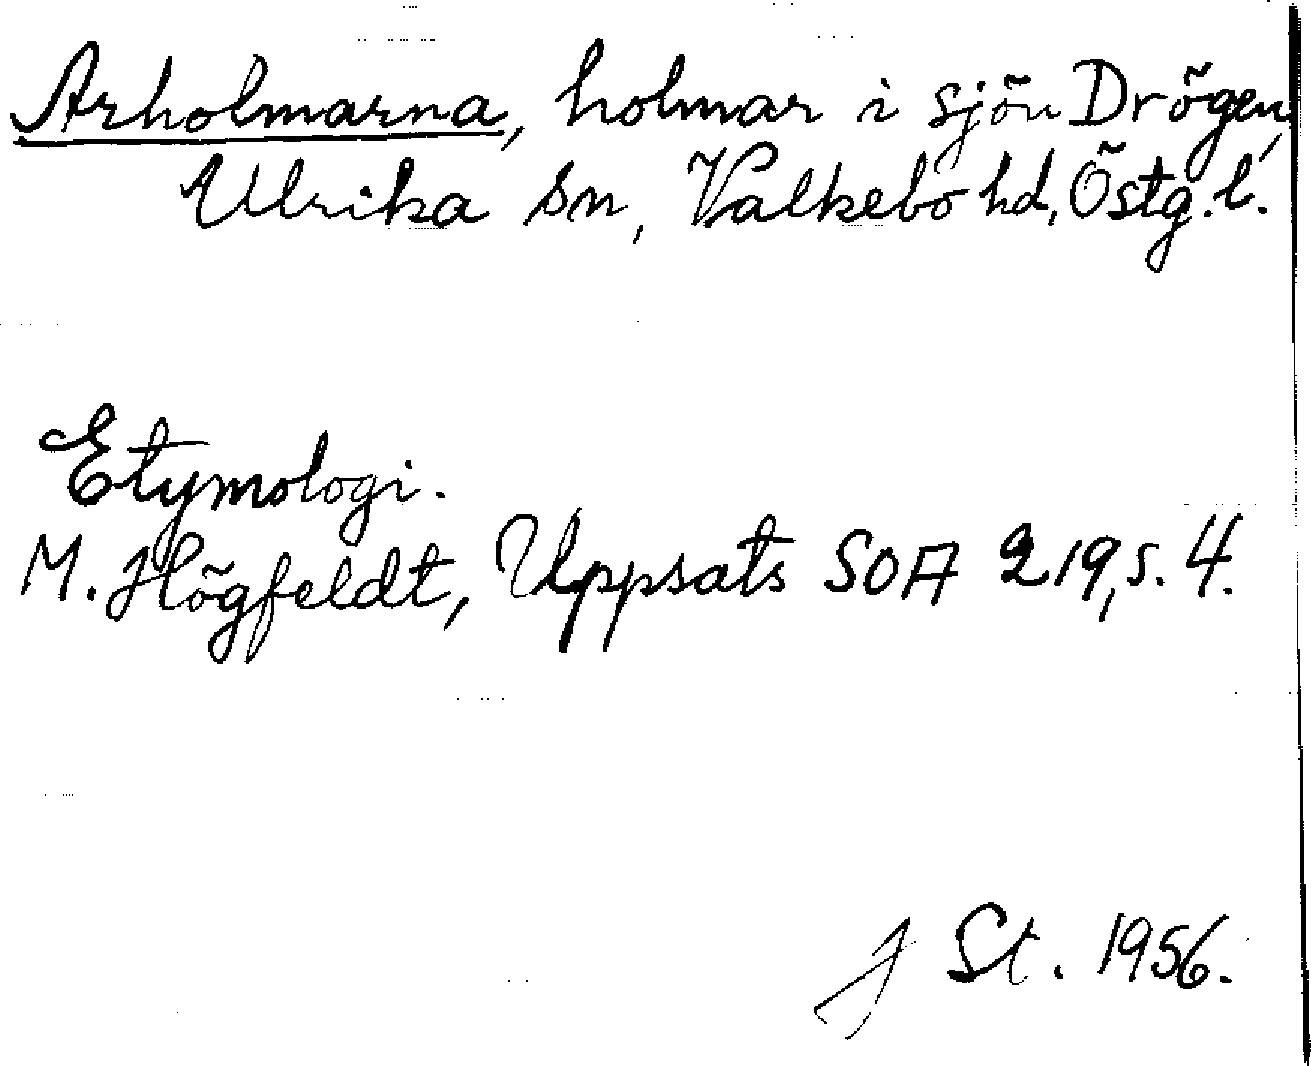 Arholmarna, holmar i sjön Drögen,
Ulrika sn, Valkebo hd, Östg. l.
Etymologi.
M. Högfeldt, Uppsats SOA 219, s. 4.
J St. 1956.